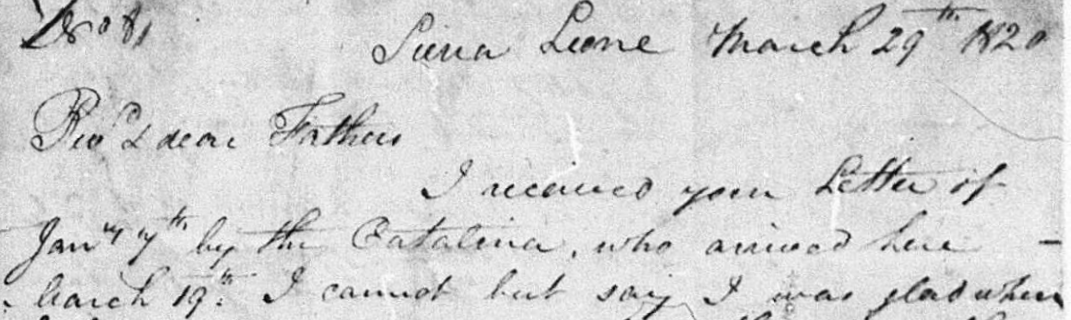 Siera Leone March 29th 1820
Revd & dear Fathers
I received your Letter of
Jany 7th by the Catalina, who arrived here –
March 19th. I cannot but say I was glad when